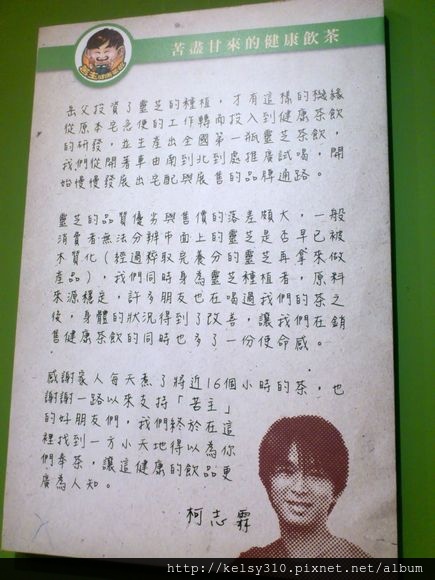 苦盡甘來的健康飲茶
岳父投資了靈芝的種植，才有這樣的機緣
從原本宅急便的工作轉而投入到健康茶飲
的研發，並生產出全國第一瓶靈芝茶飲，
我們從開著車由南到北到處推廣試喝，開
始慢慢發展出宅配與展售的品牌通路。
靈芝的品質優劣與售價的落差頗大，一般
消費者無法分辨市面上的靈芝是否早已被
木質化（經過粹取完養分的靈芝再拿來做
產品），我們同時身為靈芝種植者，原料
來源穩定，許多朋友也在喝過我們的茶之
後，身體的狀況得到了改善，讓我們在銷
售健康茶飲的同時也多了一份使命感。
感謝家人每天煮了將近16個小時的茶，也
謝謝一路以來支持「苦主」
的好朋友們，我們終於在這
裡找到一方小天地得以為你
們奉茶，讓這健康的飲品更
廣為人知。
柯志霖
http://kelsy310.pixnet.net/album